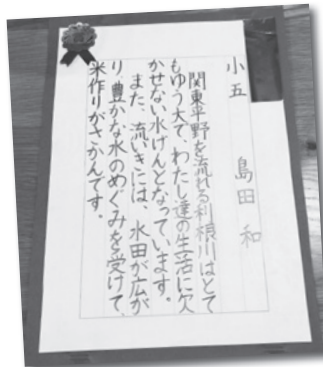 小五 島田和
関東平野を流れる利根川はとて
もゆう大で、わたし達の生活に欠
かせない水げんとなっています。
また、流いきには、水田が広が
り、豊かな水のめぐみを受けて、
米作りがさかんです。